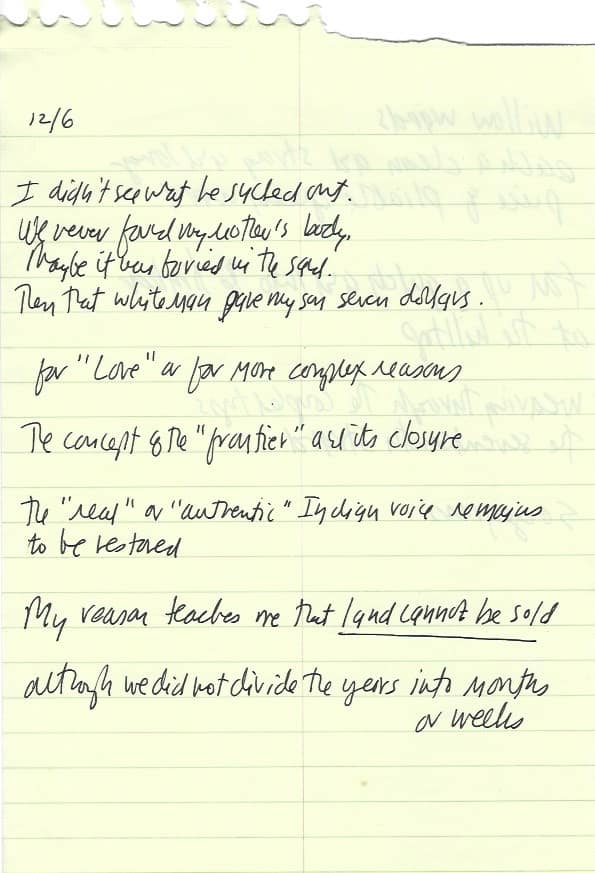 12/6
I didn't see what he sucked out.
We never found my mother's body.
Maybe it was buried in the sand.
Then that whiteman gave my son seven dollars.
for "Love" or for more complex reasons
The concept of the "frontier" and its closure
The "real" or "authentic" Indian voice remains
to be restored
My reason teaches me that land cannot be sold
although we did not divide the years into months
or weeks